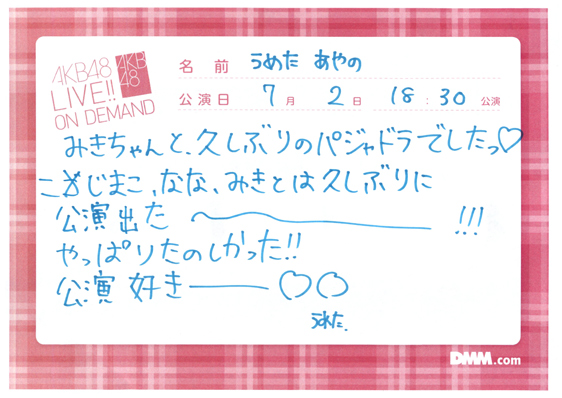 AKB48
LIVE!!
ON DEMAND
AKB
48
名前 うめた あやの
公演日 7月 2日 18:30 公演
みきちゃんと、久しぶりのパジャドラでしたっ♡
こじまこ、なな、みきとは久しぶりに
公演出た〜!!!
やっぱりたのしかった!!
公演 好き―♡♡
うめた.
DMM.com